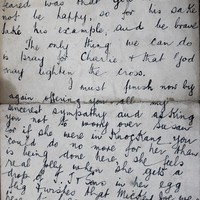 feared was that you would
not be happy, so for his sake
take his example, and be brave
The only thing we can do
is pray for Charlie & that God
may lighten the cross.
I must finish now by
again offering you all my
sincerest sympathy and asking
you not to worry over Susan
for if she were in you
could do no more for her than
is being done here; she feels
real jolly when she gets a
drop of in her egg
flip & wishes that